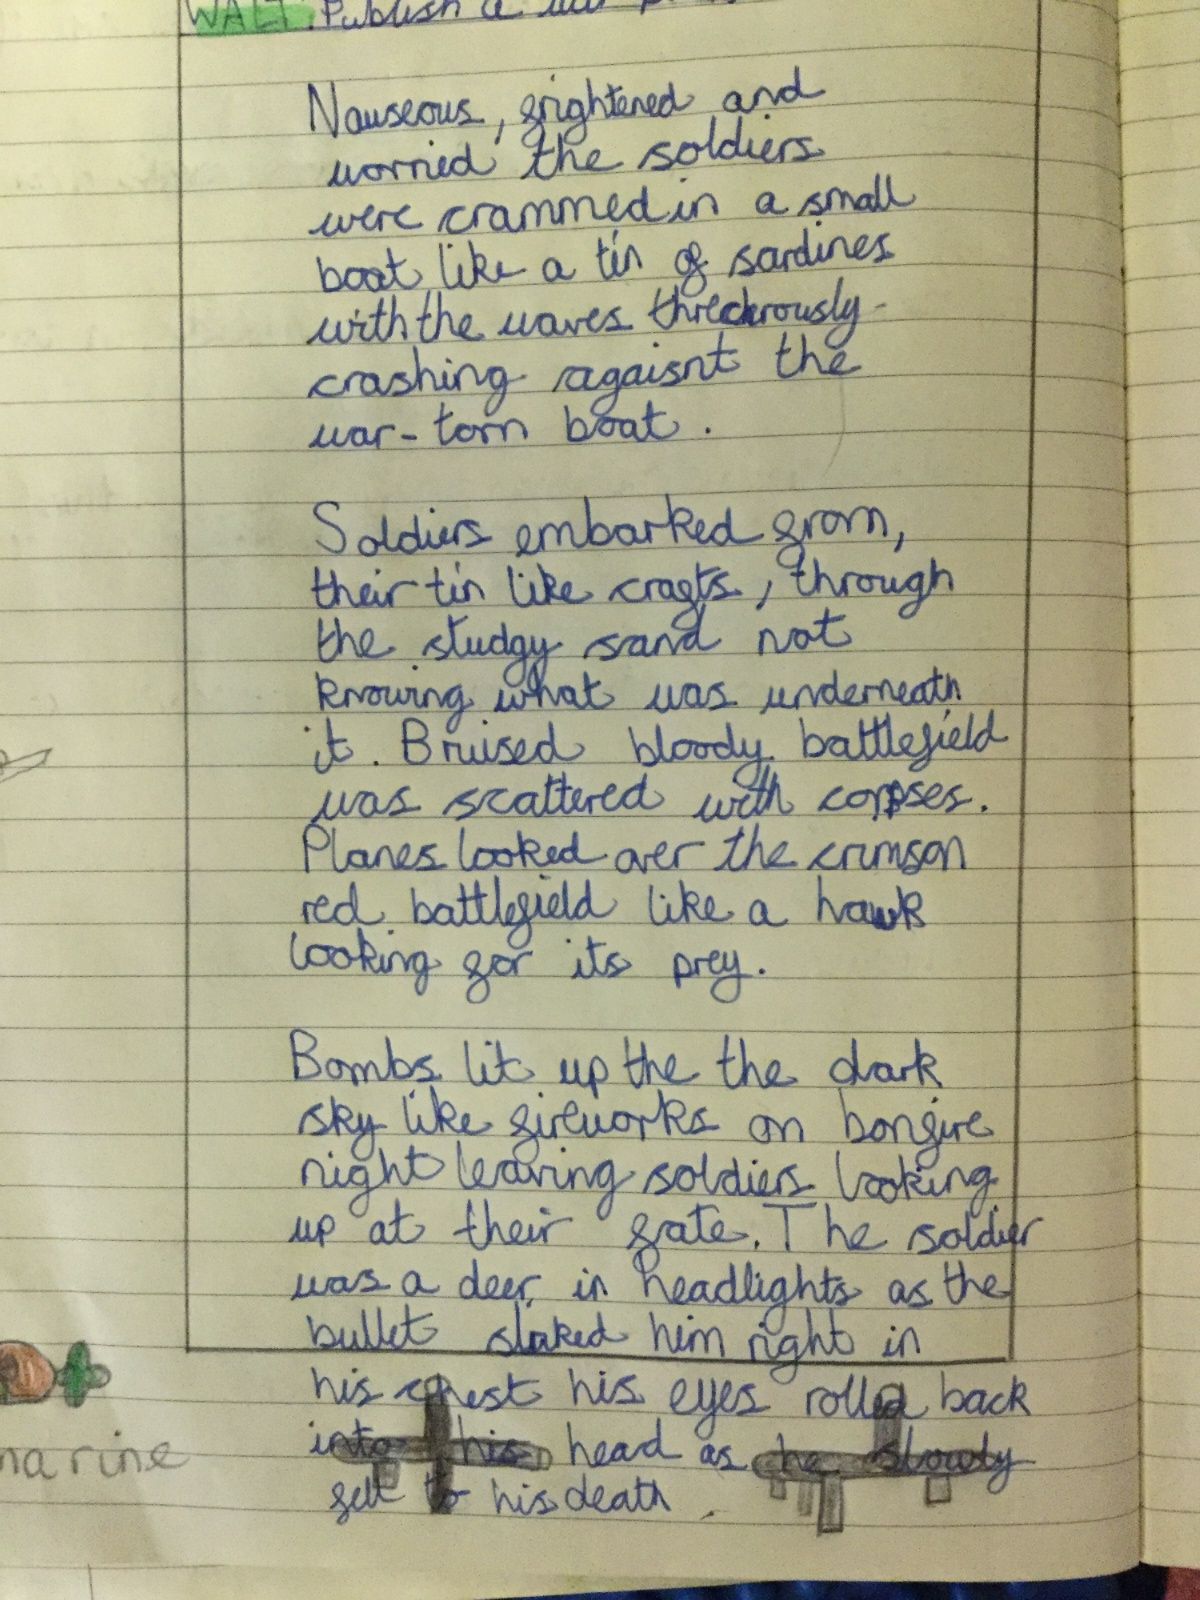 WALT: Publish a war
Nauseous, frightened and
worried the soldiers
were crammed in a small
boat like a tin of sardines
with the waves threckrously
crashing agaisnt the
war-torn boat.
Soldiers embarked from,
their tin like crafts, through
the studgy sand not
knowing what was underneath
it. Bruised bloody battlefield
was scattered with corpses.
Planes looked over the crimson
red battlefield like a hawk
looking for its prey.
Bombs lit up the the dark
sky like fireworks on bonfire
night leaving soldiers looking
up at their fate. The soldier
was a deer in headlights as the
bullet him right in
his chest his eyes rolled back
into his head as he slowly
fell to his death.
marine